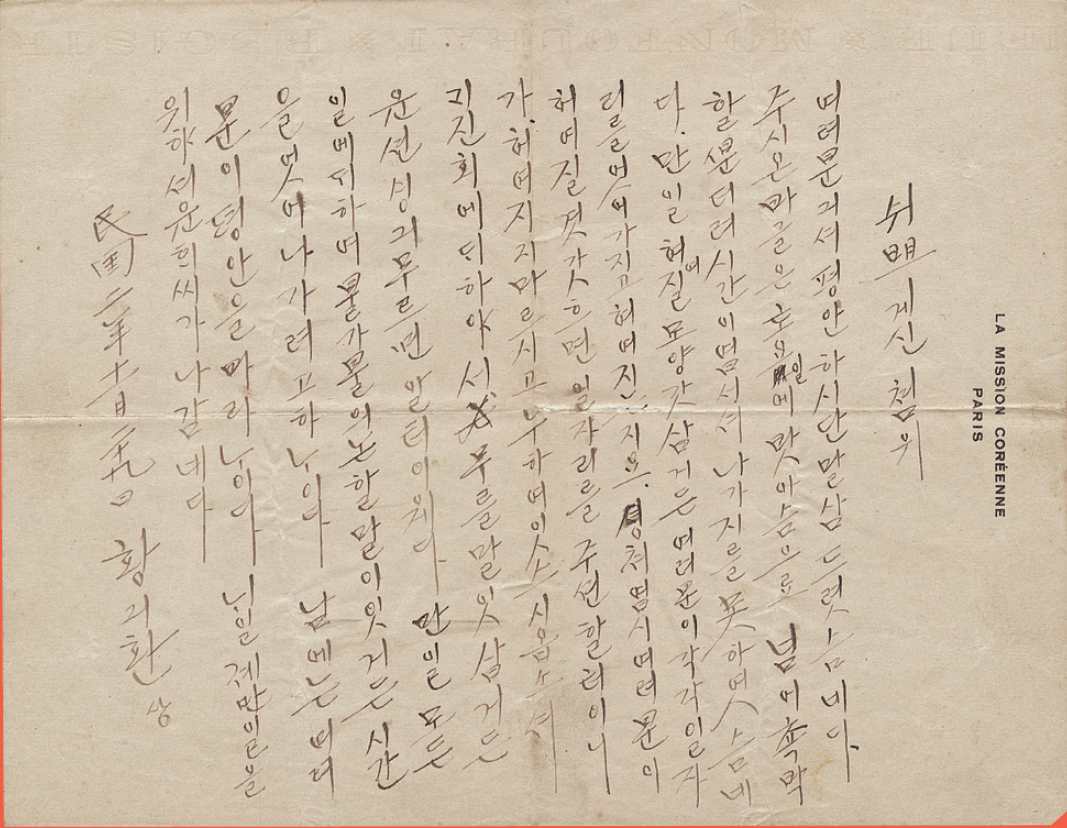 LA MISSION CORÉENNE
PARIS
쉬쁘 게신 쳠위
여려분긔셔 평안하시단 말삼 드럿슴네다.
주시온 마글은 일 에 맛아슴으로 넘어 촉박
할 분더려 시간이 업시셔 나가지를 못하엿슴네
다. 만일 혀여질 모양 갓삼거든 여려분이 각각 일자
리를 어더가지고 혀여진 지요. 쳐 업시 여려분이
허여질 것 갓흐면 일자리를 주션할려이니
가. 허여지지 마르시고 나하여 이소시옵소셔
지진회에 대하야셔 무를 말 잇삼거든
윤션싱긔 무르면 알터이웨다 만일 모든
일에 대하여 물가물의 논할 말이 잇거든 시간
을 엇어 나가려고 하나이다 남에는 여려
분이 평안을 바라나이다 닉일 졔만일을
위하셔 윤희씨가 나감네다
民国二年十一月二十九日 황긔환 상